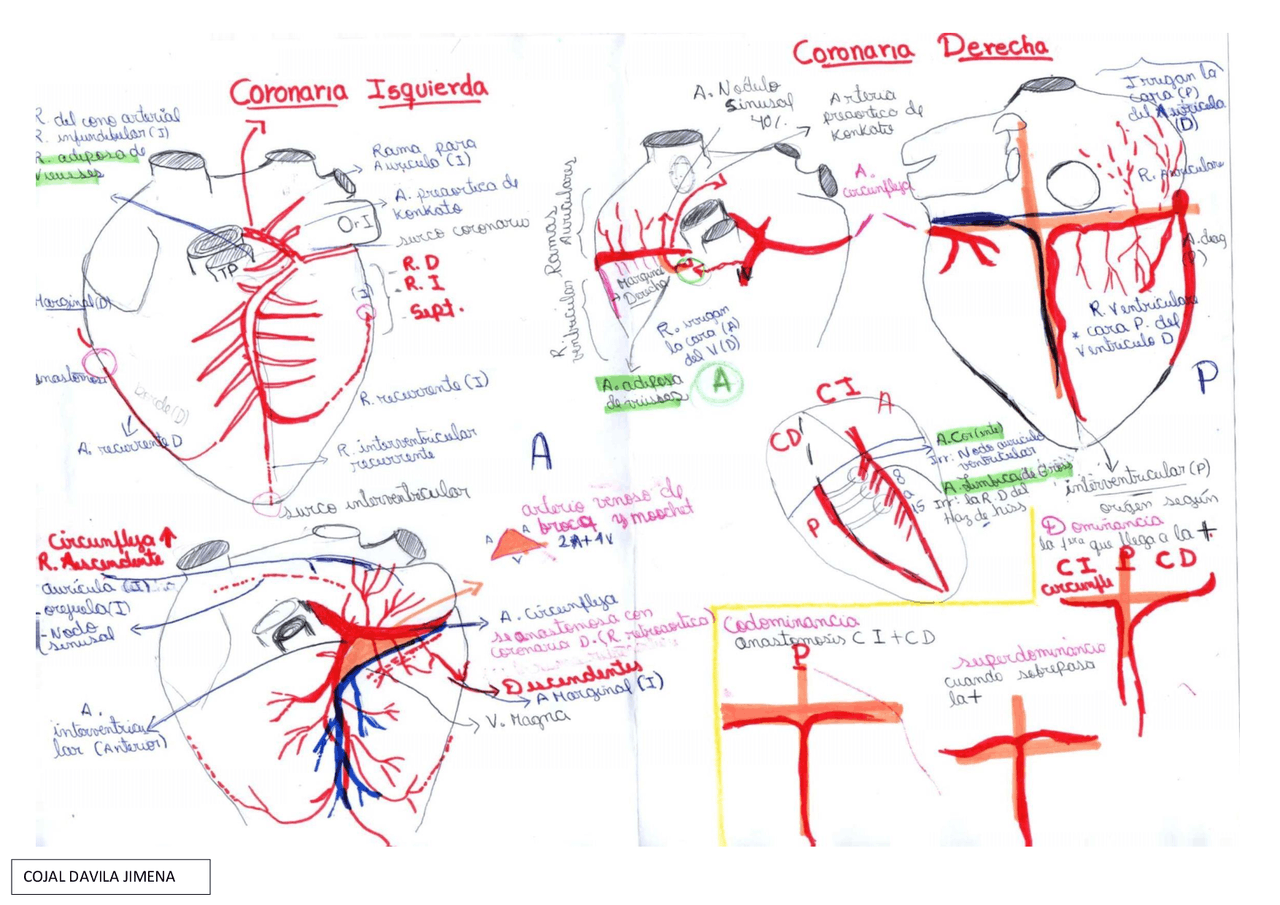 Coronaria Isquierda
R. del cono arterial
R. infundibular (I)
R. adiposa de
Viussos
Rama para
Auricula (I)
A. preaortica de
Konkato
surco coronario
Or I
TP
R. D
R. I
Sept.
(I)
Marginal (D)
anastomosi
borde (D)
A. recurrente D
R. recurrente (I)
R. interventricular
recurrente
surco interventricular
A
Circunfleja
R. Auscendente
auricula (I)
- orejuela (I)
- Nodo
sinusal
A.
interventricu
lar (Anterior)
arterio venoso de
broca y moochet
A A
V
2A + 1V
A. Circunfleja
se anastomosa con
coronaria D. (R retroaortica)
Descendentes
A Marginal (I)
V. Magna
Coronaria Derecha
A. Nodulo
Sinusal
40%
Arteria
preaortica de
Konkato
A.
circunfleja
Ramas
Auriculares
R. ventriculares
Marginal
Derecha
R. irrigan
la cara (A)
del V (D)
A. adiposa
de viussos
A
Irrigan la
cara (P)
del Auricula
(D)
R. Auriculares
A. diag
R. Ventriculares
* cara P. del
Ventriculo D
P
interventricular (P)
origen según
Dominancia
la 1era que llega a la +
CI P CD
circunfle
CI
A
CD
P
8
a
15
A. Cor(inte)
Irr. Nodo auriculo
ventricular
A. Limbica de Gross
Irr. la R. D del
Haz de hiss
Codominancia
anastomosis C I + CD
P
superdominancia
cuando sobrepasa
la +
COJAL DAVILA JIMENA